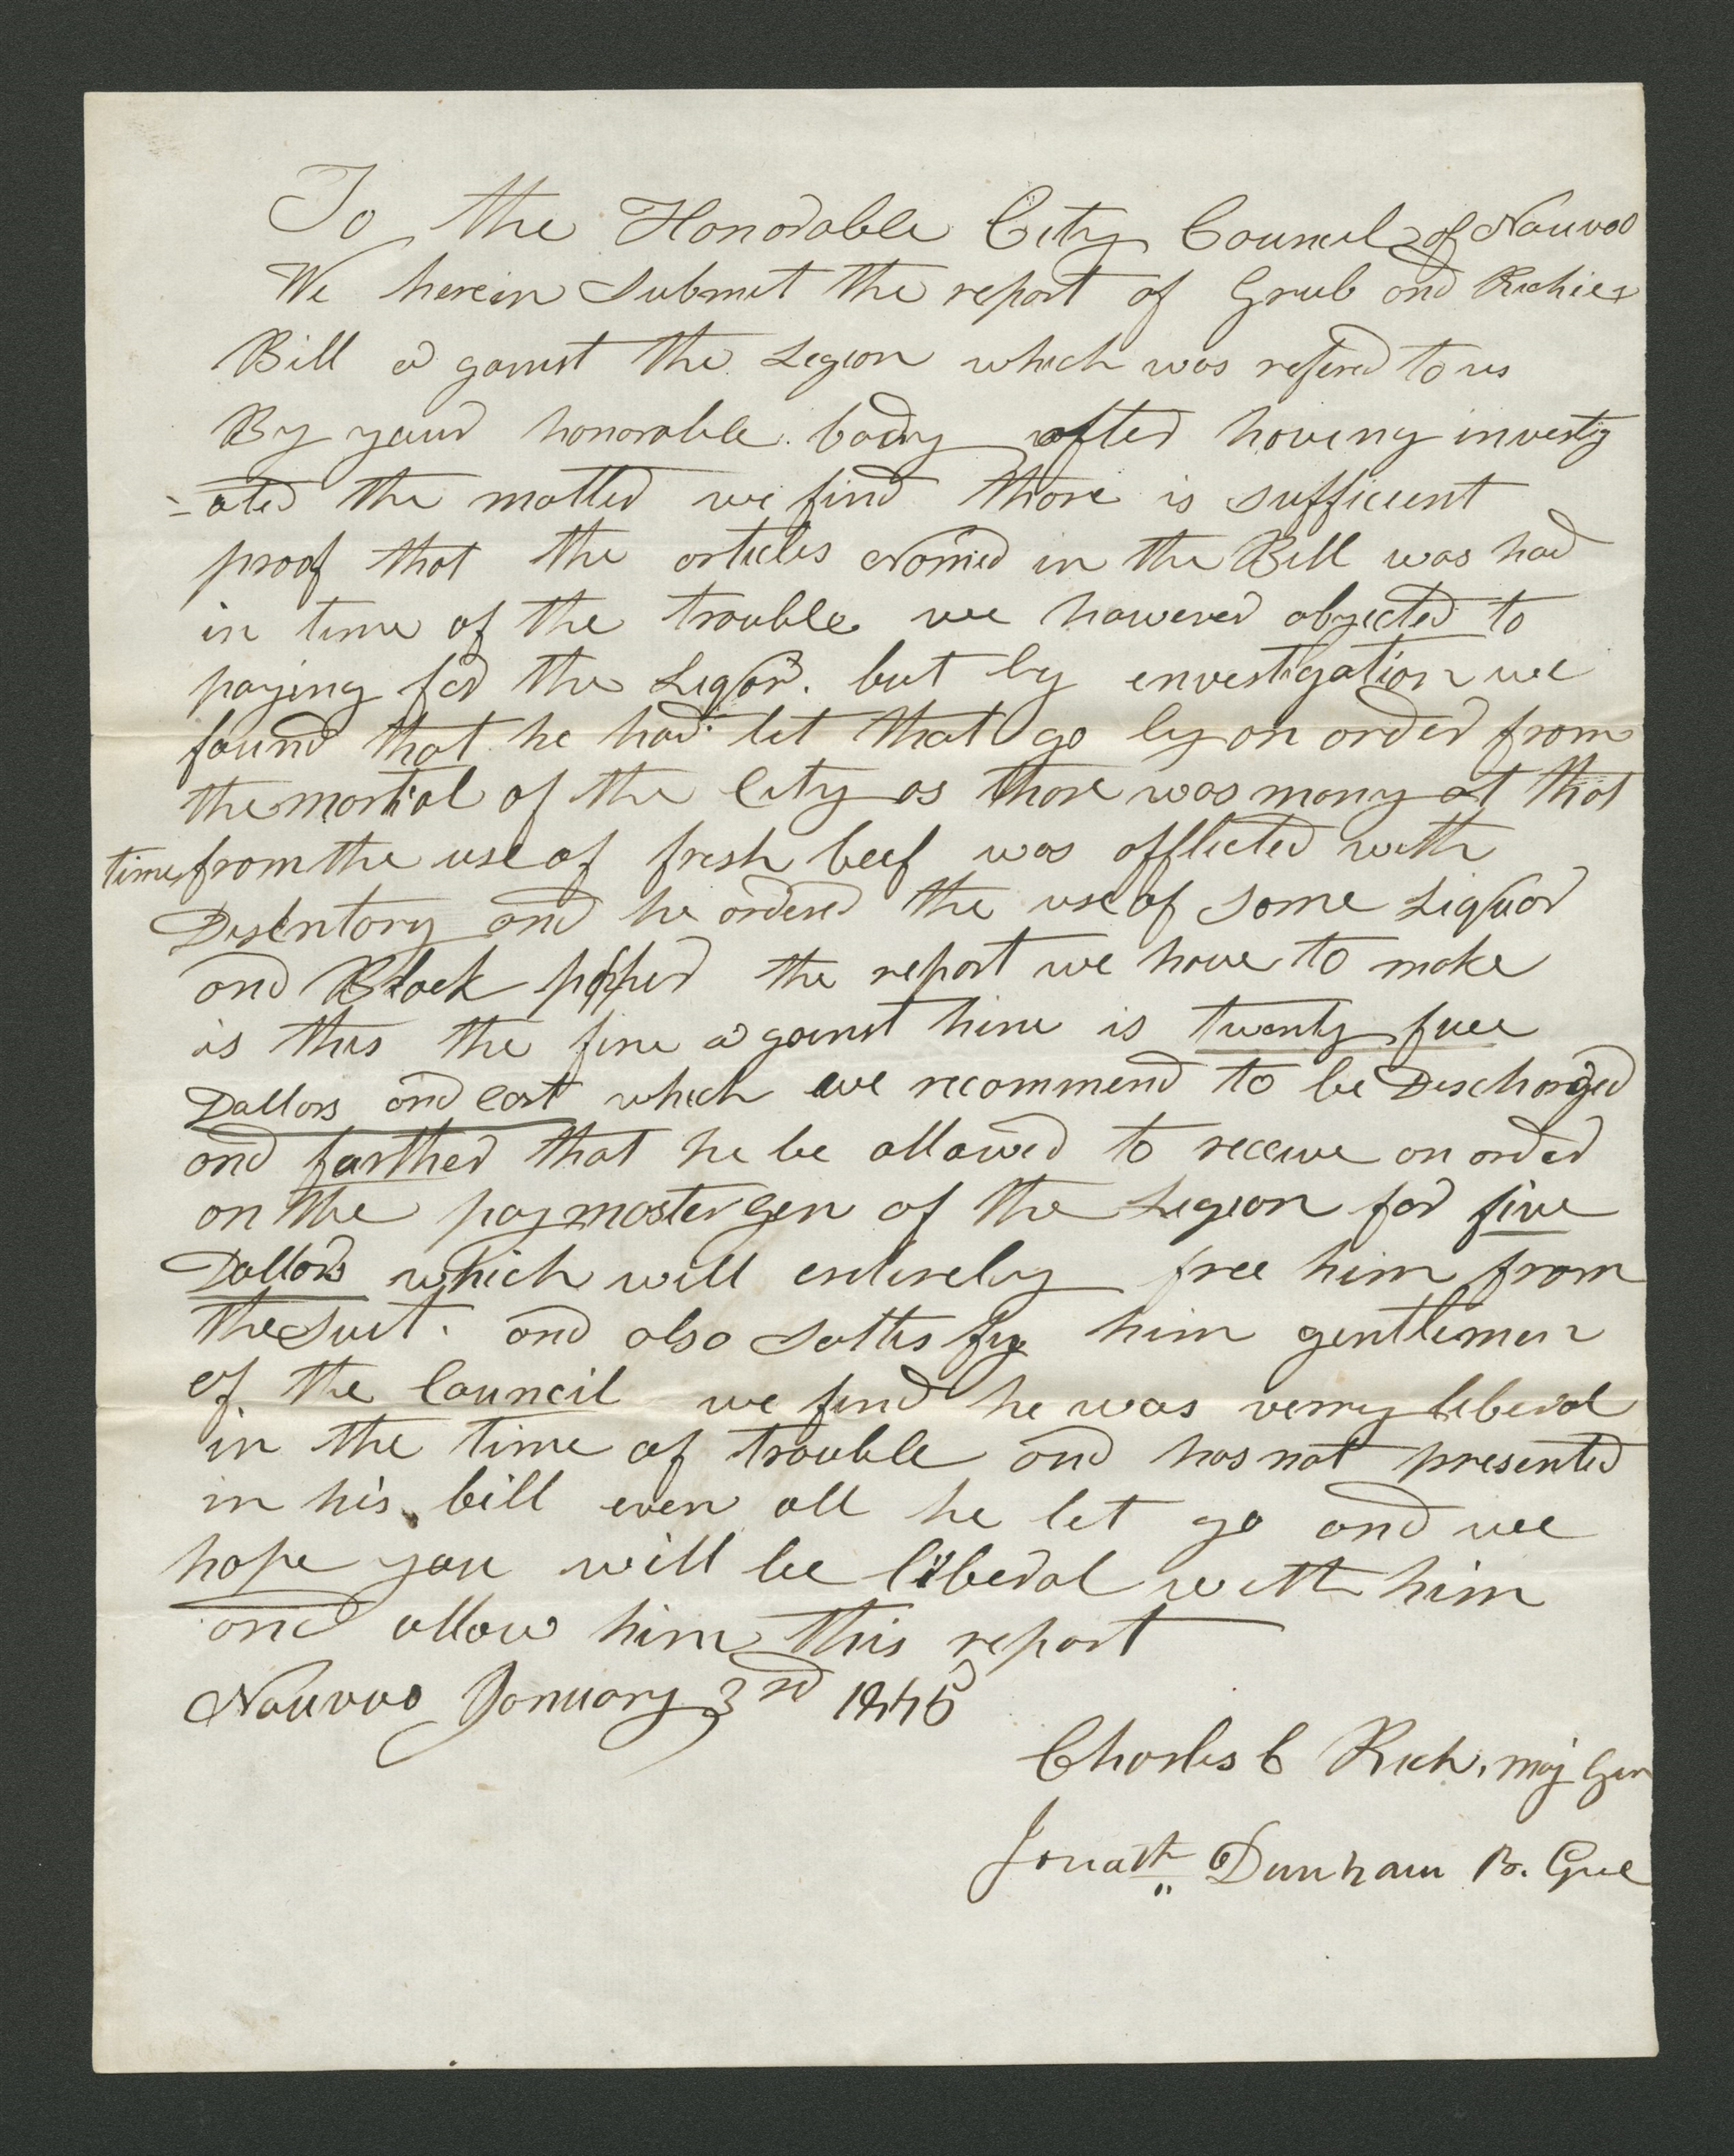 To the Honorable City Council of Nauvoo
We herein Submit the report of Grub and Richies
Bill a gainst the Legion which was refered to us
By your honorable body after having investig
=ated the matter we find thare is sufficient
proof that the articles Named in the Bill was had
in time of the trouble we however objected to
paying for the Liqor. but by envestigation we
found that he had let that go by an order from
the marshal of the City as thare was many at that
time from the use of fresh beef was afflicted with
Disentary and he ordered the use of some Liquor
and Black pepper the report we have to make
is this the fine a gainst him is twenty five
Dallars and cost which we recommend to be Discharged
and farther that he be allowed to receive an order
on the paymaster Gen of the Legion for five
Dallars which will entirely free him from
the suit. and also sattisfy him gentlemen
of the Council we find he was verry liberal
in the time of trouble and has not presented
in his bill even all he let go and we
hope you will be liberal with him
and allow him this report
Nauvoo January 3rd 1845
Charles C Rich, Maj Gen
Jonath Dunham B. Gnl